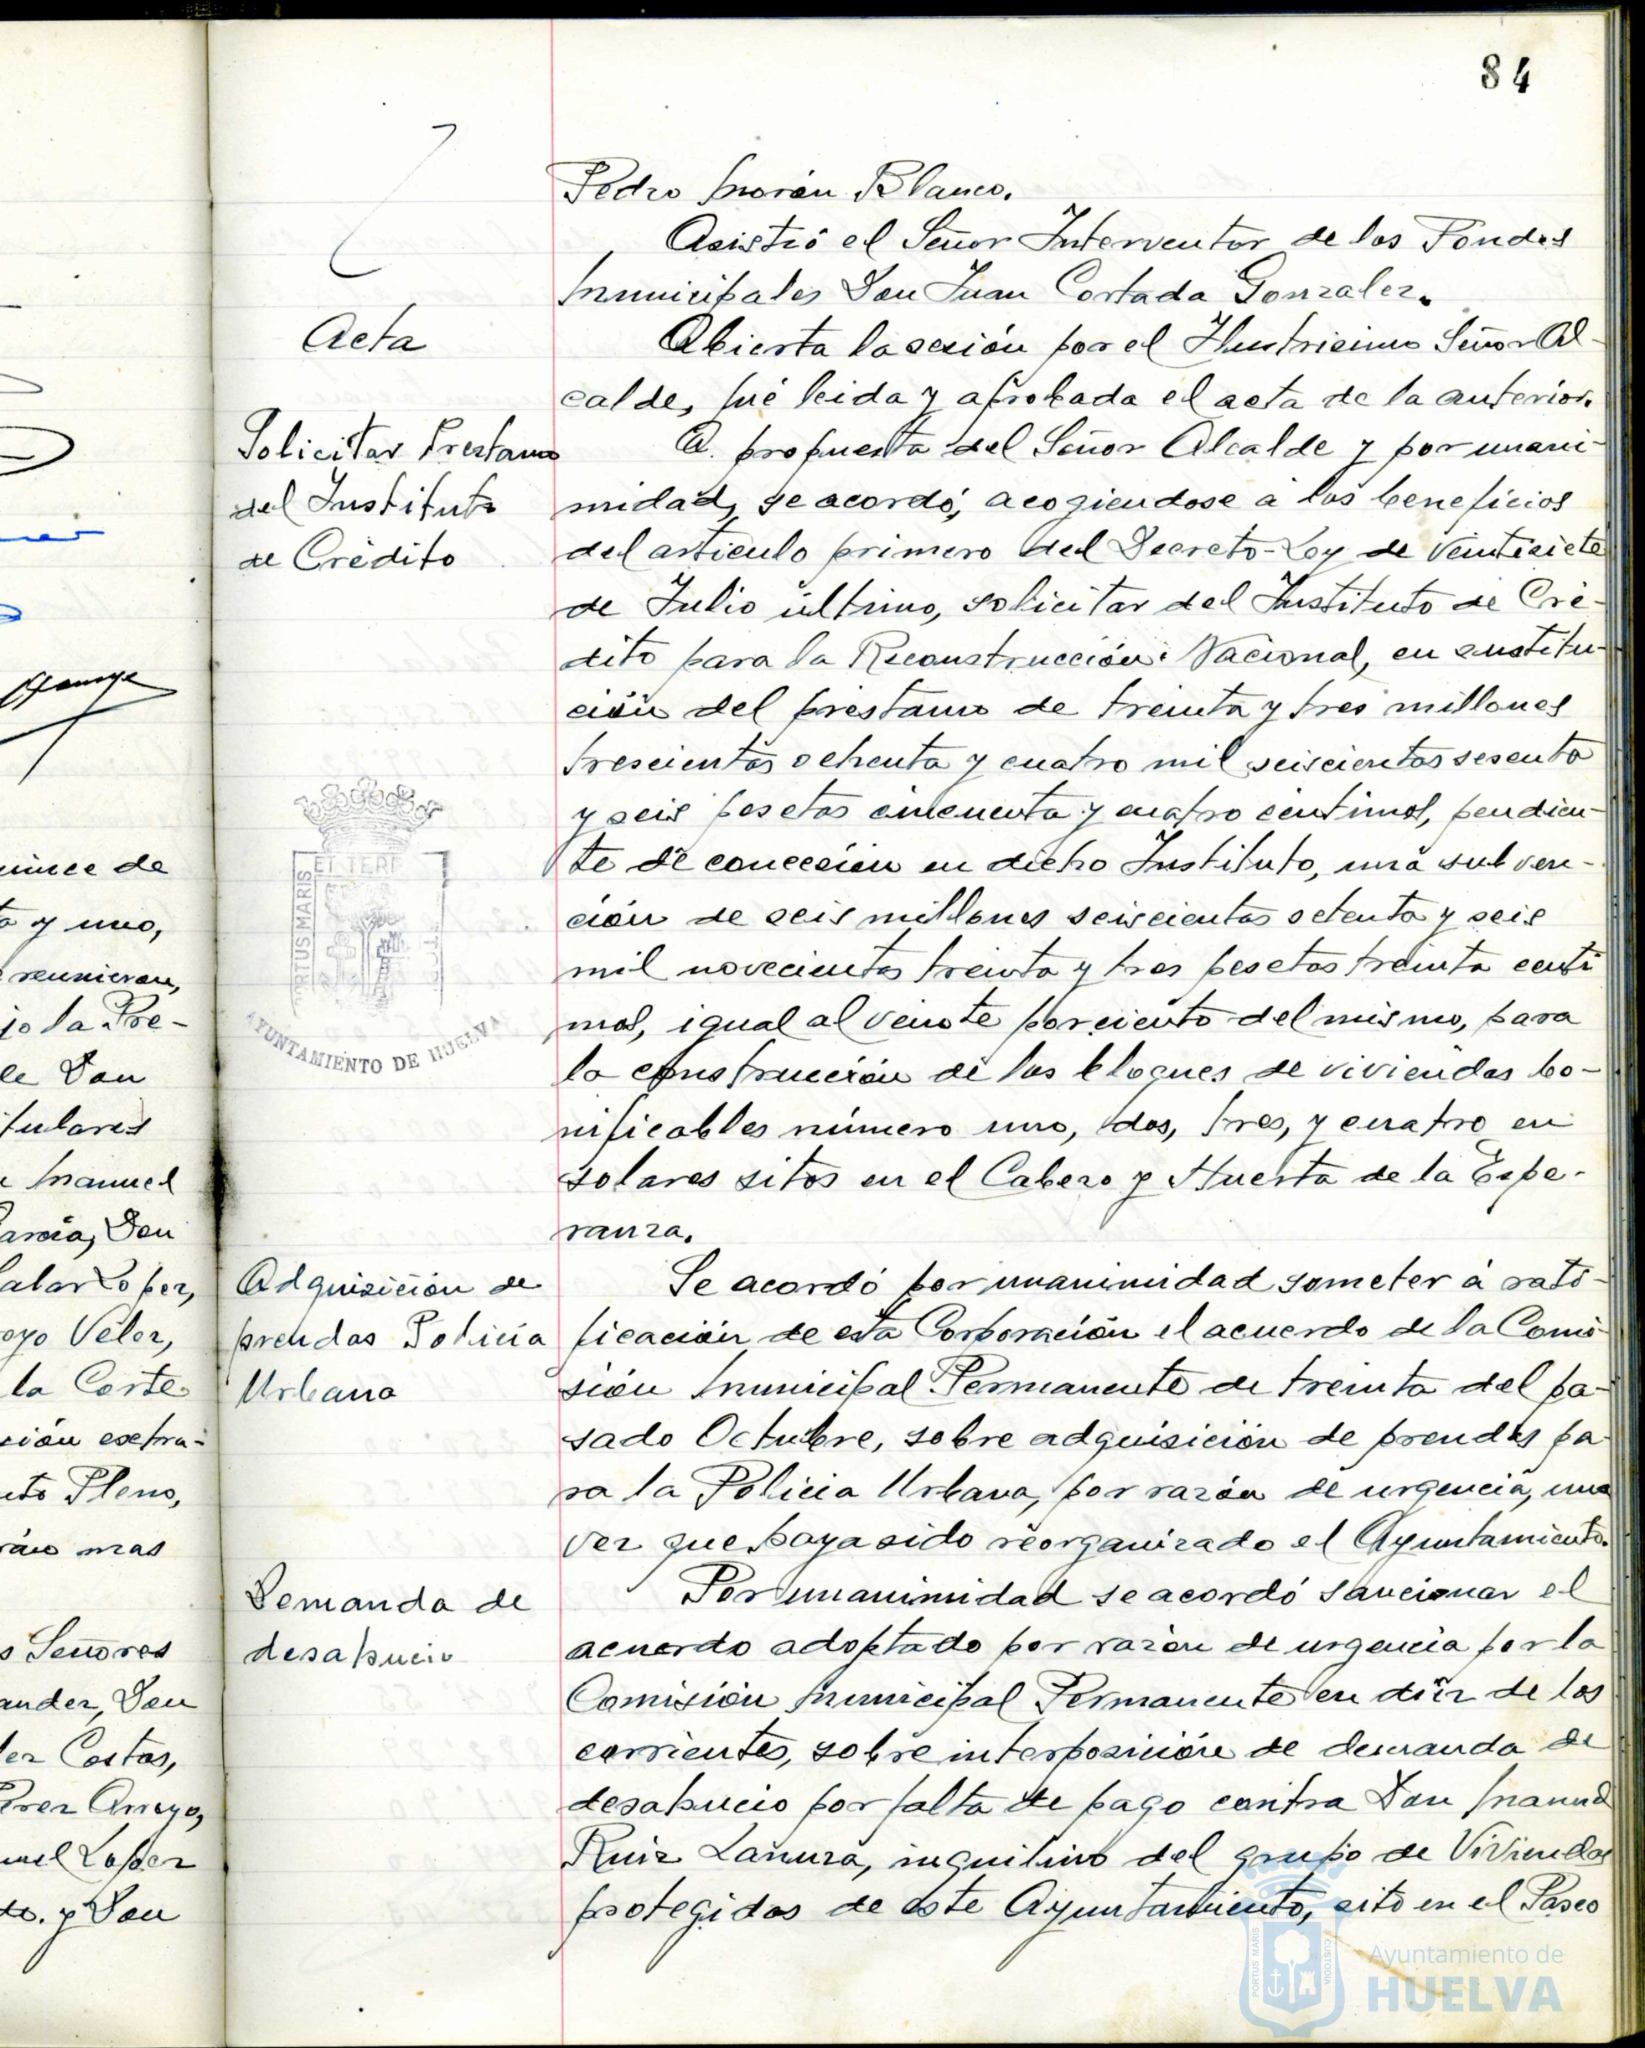 84
Pedro Morón Blanco.
Asistió el Señor Interventor de los Fondos
Municipales Don Juan Cortada Gonzalez.
Acta
Abierta la sesión por el Ilustrisimo Señor Al-
calde, fué leida y aprobada el acta de la anterior.
Solicitar Prestamo
del Instituto
de Crédito
A propuesta del Señor Alcalde y por unani-
midad, se acordó, acogiendose a los beneficios
del articulo primero del Decreto-Ley de veintisiete
de Julio último, solicitar del Instituto de Cré-
dito para la Reconstrucción Nacional, en sustitu-
ción del préstamo de treinta y tres millones
trescientas ochenta y cuatro mil seiscientas sesenta
y seis pesetas cincuenta y cuatro centimos, pendien-
te de conceción en dicho Instituto, una subven-
ción de seis millones seiscientas setenta y seis
mil novecientas treinta y tres pesetas treinta centi
mos, igual al veinte por ciento del mismo, para
la construcción de los bloques de viviendas bo-
nificables número uno, dos, tres, y cuatro en
solares sitos en el Cabezo y Huerta de la Espe-
ranza.
Adquisición de
prendas Policia
Urbana
Se acordó por unanimidad someter a rati-
ficación de esta Corporación el acuerdo de la Comi-
sión Municipal Permanente de treinta del pa-
sado Octubre, sobre adquisición de prendas pa-
ra la Policia Urbana, por razón de urgencia, una
vez que haya sido reorganizado el Ayuntamiento.
Demanda de
desahucio
Por unanimidad se acordó sancionar el
acuerdo adoptado por razón de urgencia por la
Comisión Municipal Permanente en diez de los
corrientes, sobre interposición de demanda de
desahucio por falta de pago contra Don Manuel
Ruiz inquilino del grupo de Viviendas
protegidas de este Ayuntamiento, sito en el Paseo
ET TERR
PORTUS MARIS
AYUNTAMIENTO DE HUELVA
quince de
y uno,
reunieron,
jo la Pre-
le Don
tulares
Manuel
Garcia, Don
Lopez,
oyo Vélez,
la Corte
sión extra-
nto Pleno,
mas
Señores
ander, Don
Costas,
Perez Arroyo,
uel Lopez
do. y Don
PORTUS MARIS
CUSTODIA
Ayuntamiento de
HUELVA